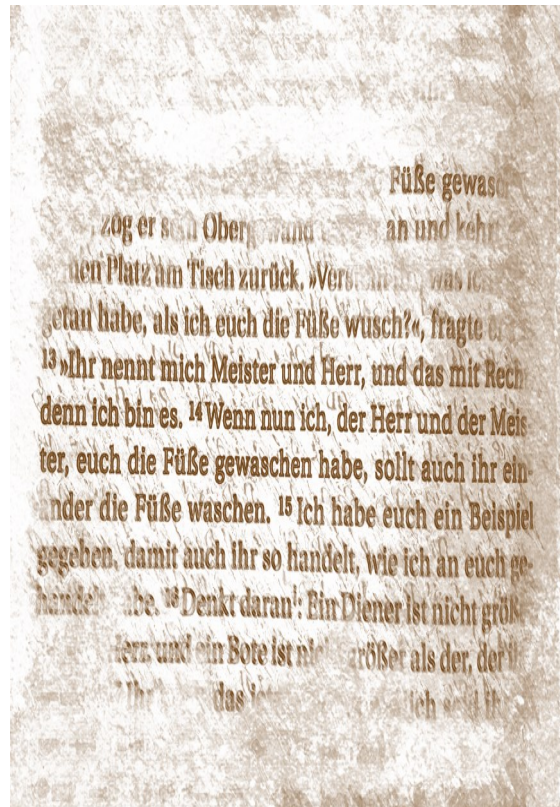 Füße gewasc
zog er sein Obergewand an und kehr
nen Platz am Tisch zurück. »Vers was ic
getan habe, als ich euch die Füße wusch?«, fragte e
13 »Ihr nennt mich Meister und Herr, und das mit Rech
denn ich bin es. 14 Wenn nun ich, der Herr und der Meis
ter, euch die Füße gewaschen habe, sollt auch ihr ein-
ander die Füße waschen. 15 Ich habe euch ein Beispiel
gegeben, damit auch ihr so handelt, wie ich an euch ge-
handelt habe. 16 Denkt daran: Ein Diener ist nicht größ
Herr, und ein Bote ist nicht größer als der, der
das